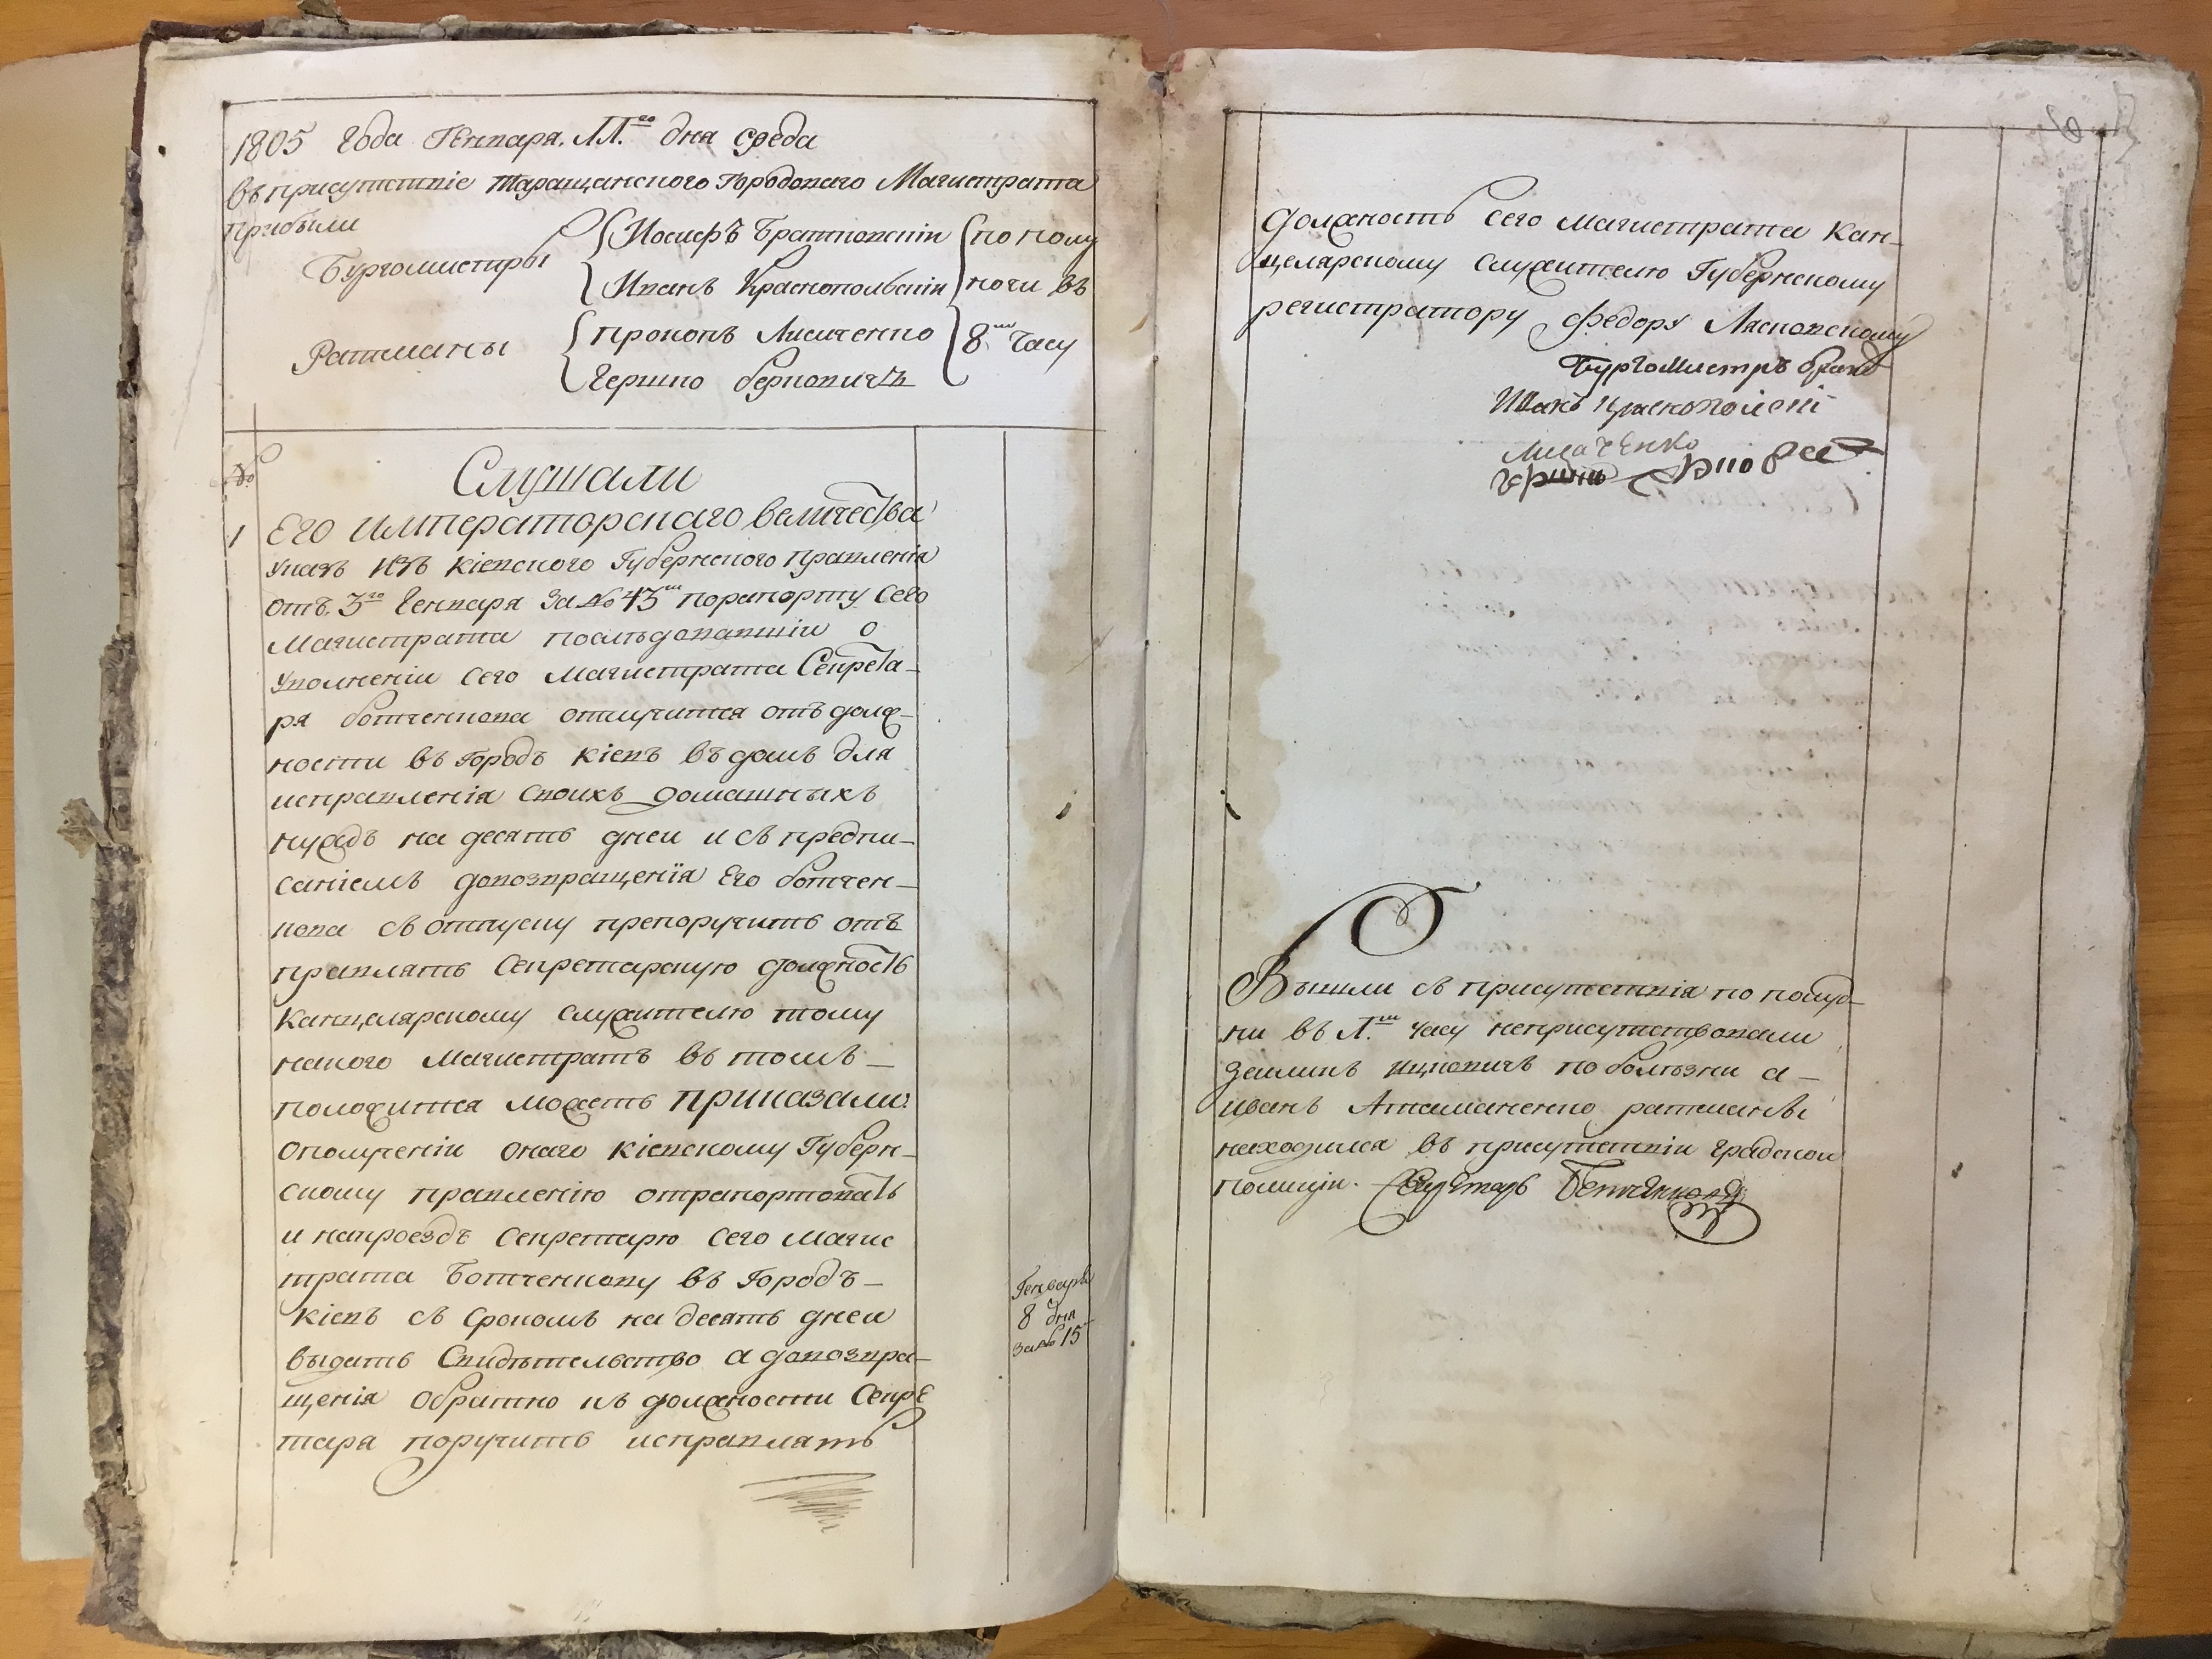 1805 года Генваря. 11.го дня среда
въ присутствіе таращанского Городоваго Магистрата
прибыли
Бургомистры
Иосифъ Братковскій
Иванъ Краснопольскій
по полу
ночи въ
8м часу
Ратманы
Прокопъ Лисиченко
Гершко берковичъ
№
Слушали
1 Его императорскаго величества
указъ изъ кіевского Губернского правленія
отъ. 3го Генваря за № 43м порапорту сего
Магистрата последовавшій о
уволненіи сего магистрата Секрета-
ря ботченкова отлучится отъ долж-
ности въ городъ кіевъ въ домъ для
исправленія своихъ домашныхъ
нуждъ на десять дней и съ предпи-
саніемъ довозвращенія Его ботчен-
кова съ отпуску препоручить от
правлять секретарскую должность
канцелярскому служителю тому
накого магистратъ въ томъ -
положится можетъ приказали:
ополученіи онаго кіевскому Губерн-
скому правленію отрапортовать
и напроездъ секретарю сего магис
трата Ботченкову въ городъ -
кіевъ съ срокомъ на десять дней
выдать свидѣтельство а довозвра-
щенія обратно къ должности секре
таря поручить исправлять
Генваря
8 дня
за № 15
должность сего магистрата кан-
целярскому служителю Губернскому
регистратору федору Лясковскому
Бургомистръ
Иванъ
Лисиченко
Вышли съ присутствія по полуд-
ни въ 1.м часу неприсутствовали
ицковичъ по болѣзни а -
иванъ Атаманенко ратманъ
находился въ присутствіи градской
полиціи. Секретарь Ботченковъ